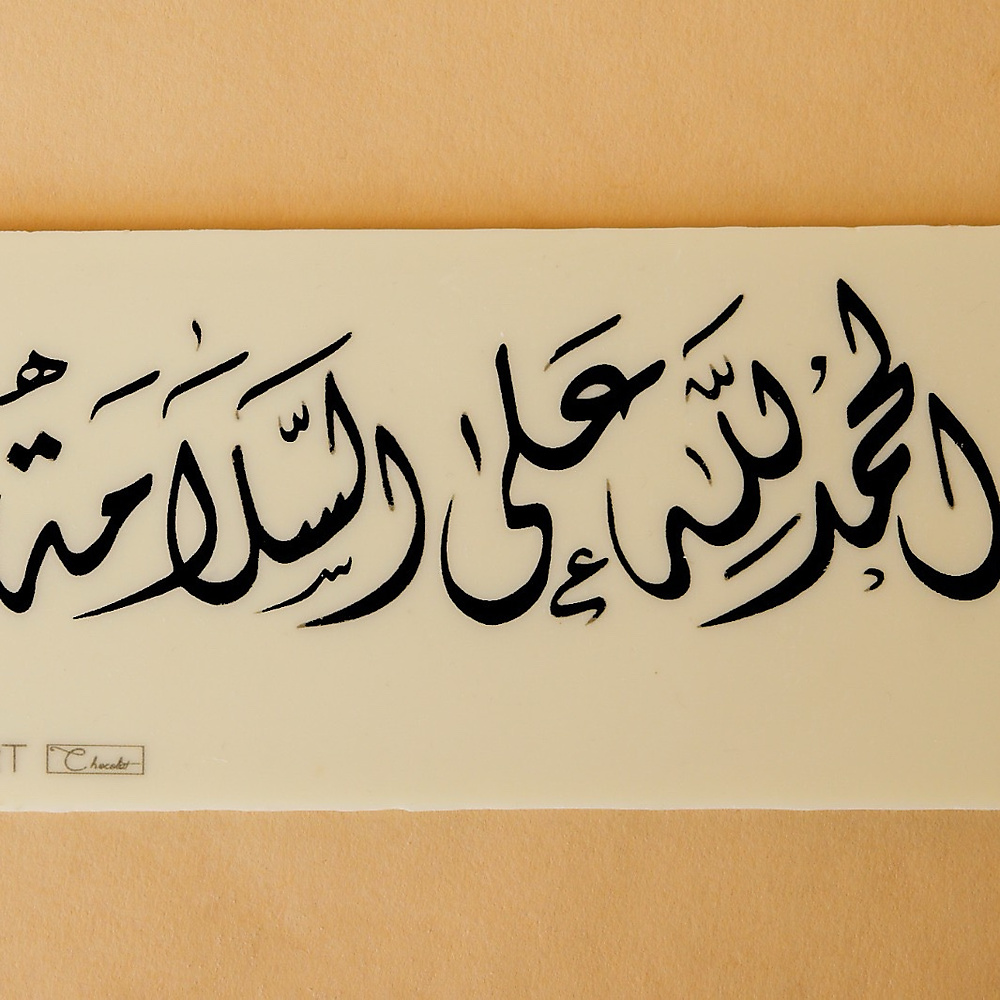 الحمد لله على السلامة
T Chocolat